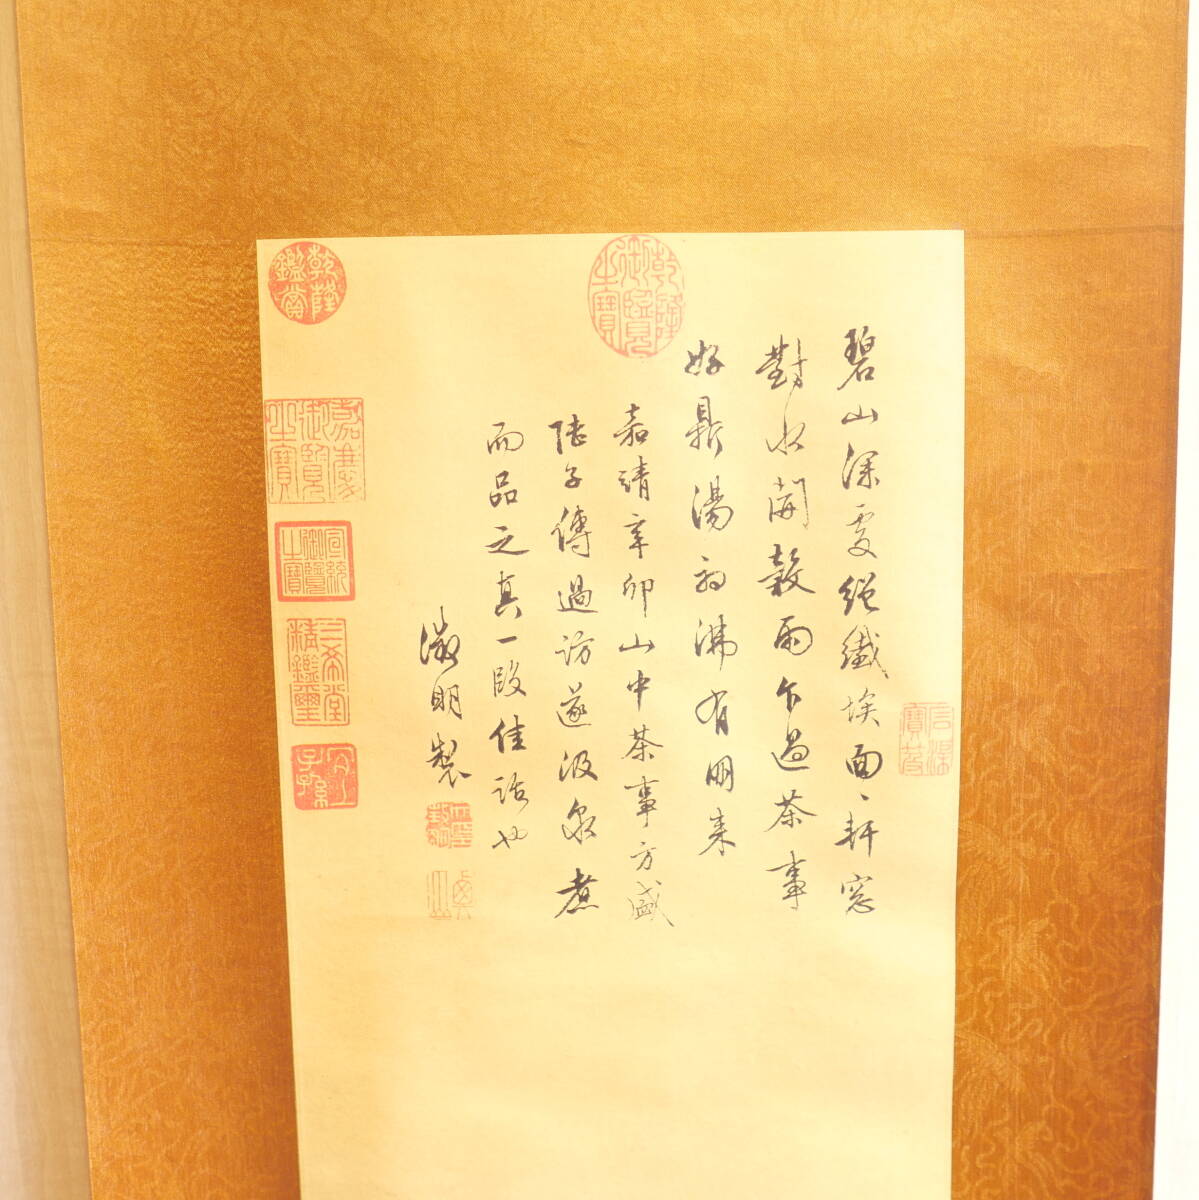 碧山深處絕纖埃面、軒窓
對水開穀雨乍過茶事
好鼎湯初沸有朋来
嘉靖辛卯山中茶事方盛
陸子傅過訪遂汲泉煮
而品之真一段佳話也
徵明製
乾隆御覽之寶
乾隆鑑賞
嘉慶御覽之寶
宣統御覽之寶
三希堂精鑑璽
宜子孫